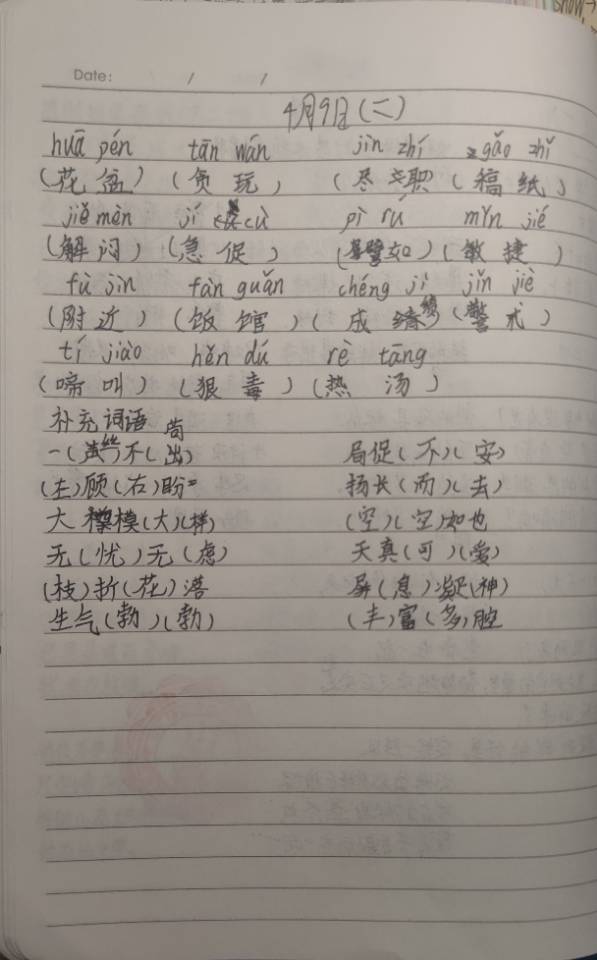 Show
Date: / /
4月9日(二)
huā pén tān wán jìn zhí gǎo zhǐ
(花盆) (贪玩) (尽职) (稿纸)
jiě mèn jí cù pì rú mǐn jié
(解闷) (急促) (譬如) (敏捷)
fù jìn fàn guǎn chéng jì jǐn jiè
(附近) (饭馆) (成绩) (警戒)
tí jiào hěn dú rè tāng
(啼叫) (狠毒) (热汤)
补充词语
一(声)不(出) 局促(不)(安)
(左)顾(右)盼
扬长(而)(去)
大模(大)(样) (空)(空)如也
无(忧)无(虑) 天真(可)(爱)
(枝)折(花)落 屏(息)凝(神)
生气(勃)(勃) (丰)富(多)腔